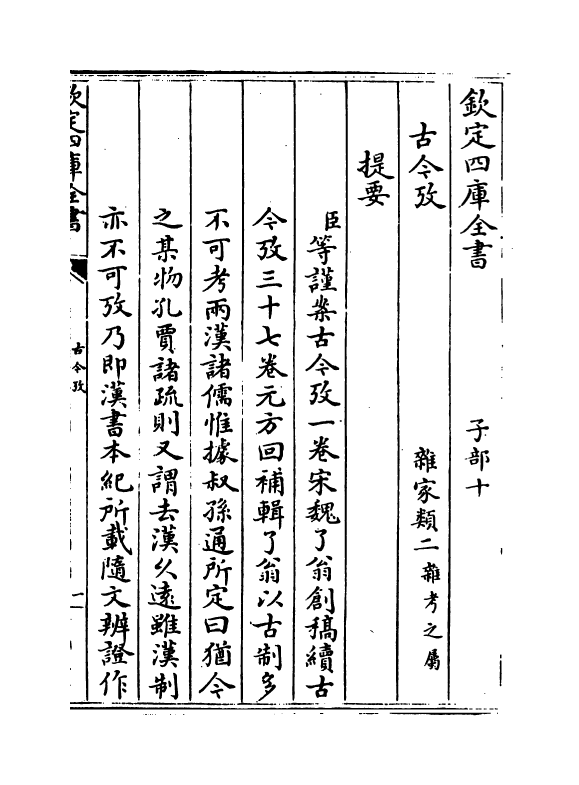 欽定四庫全書 子部十
古今攷 雜家類二雜考之屬
提要
臣等謹案古今攷一卷宋魏了翁創稿續古
今攷三十七卷元方回補輯了翁以古制多
不可考兩漢諸儒惟據叔孫通所定曰猶今
之某物孔賈諸疏則又謂去漢久遠雖漢制
亦不可攷乃即漢書本紀所載隨文辨證作
欽定四庫全書 古今攷 一